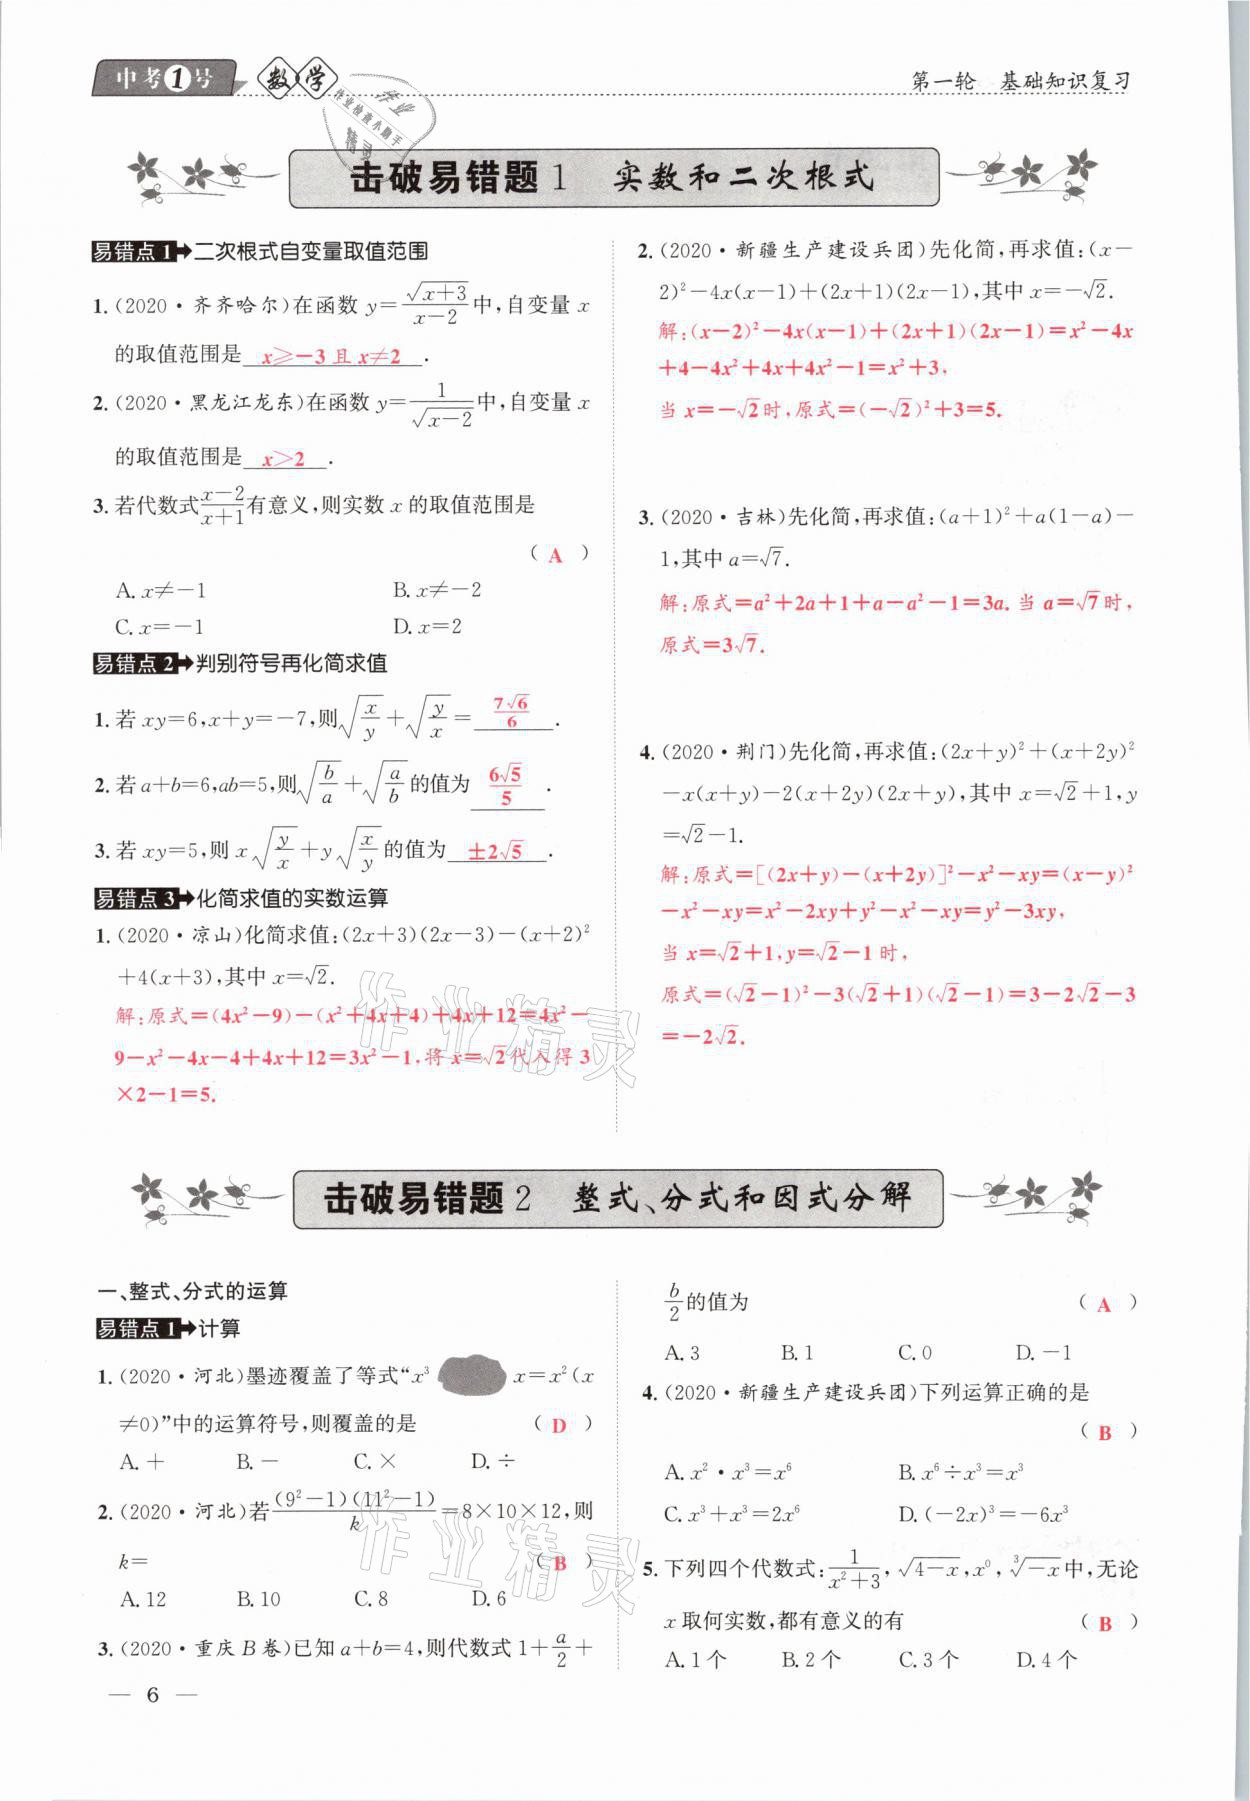 中考1号 数学
第一轮 基础知识复习
击破易错题1 实数和二次根式
易错点1→二次根式自变量取值范围
1.(2020·齐齐哈尔)在函数 y=√(x+3)/(x-2)中,自变量 x
的取值范围是 x≥-3且x≠2 .
2.(2020·黑龙江龙东)在函数 y=1/√(x-2)中,自变量 x
的取值范围是 x>2 .
3.若代数式(x-2)/(x+1)有意义,则实数 x 的取值范围是
( A )
A.x≠-1 B.x≠-2
C.x=-1 D.x=2
易错点2→判别符号再化简求值
1.若 xy=6,x+y=-7,则√(x/y)+√(y/x)= 7√6/6 .
2.若 a+b=6,ab=5,则√(b/a)+√(a/b)的值为 6√5/5 .
3.若 xy=5,则 x√(y/x)+y√(x/y)的值为 ±2√5 .
易错点3→化简求值的实数运算
1.(2020·凉山)化简求值:(2x+3)(2x-3)-(x+2)²
+4(x+3),其中 x=√2.
解:原式=(4x²-9)-(x²+4x+4)+4x+12=4x²-
9-x²-4x-4+4x+12=3x²-1,将 x=√2代入得 3
×2-1=5.
2.(2020·新疆生产建设兵团)先化简,再求值:(x-
2)²-4x(x-1)+(2x+1)(2x-1),其中 x=-√2.
解:(x-2)²-4x(x-1)+(2x+1)(2x-1)=x²-4x
+4-4x²+4x+4x²-1=x²+3,
当 x=-√2时,原式=(-√2)²+3=5.
3.(2020·吉林)先化简,再求值:(a+1)²+a(1-a)-
1,其中 a=√7.
解:原式=a²+2a+1+a-a²-1=3a.当 a=√7时,
原式=3√7.
4.(2020·荆门)先化简,再求值:(2x+y)²+(x+2y)²
-x(x+y)-2(x+2y)(2x+y),其中 x=√2+1,y
=√2-1.
解:原式=[(2x+y)-(x+2y)]²-x²-xy=(x-y)²
-x²-xy=x²-2xy+y²-x²-xy=y²-3xy,
当 x=√2+1,y=√2-1时,
原式=(√2-1)²-3(√2+1)(√2-1)=3-2√2-3
=-2√2.
击破易错题2 整式、分式和因式分解
一、整式、分式的运算
易错点1→计算
1.(2020·河北)墨迹覆盖了等式“x³ x=x²(x
≠0)”中的运算符号,则覆盖的是 ( D )
A.+ B.- C.× D.÷
2.(2020·河北)若(9²-1)(11²-1)/k=8×10×12,则
k= ( B )
A.12 B.10 C.8 D.6
3.(2020·重庆B卷)已知 a+b=4,则代数式 1+a/2+
b/2的值为 ( A )
A.3 B.1 C.0 D.-1
4.(2020·新疆生产建设兵团)下列运算正确的是
( B )
A.x²·x³=x⁶ B.x⁶÷x³=x³
C.x³+x³=2x⁶ D.(-2x)³=-6x³
5.下列四个代数式:1/(x²+3),√(4-x),x⁰,³√(-x)中,无论
x 取何实数,都有意义的有 ( B )
A.1个 B.2个 C.3个 D.4个
— 6 —
作业
作业检查小助手
精灵
作业精灵
作业精灵